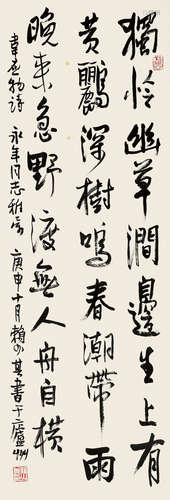 獨怜幽草澗邊生上有
黄鸝深樹鳴春潮帶雨
晚来急野渡無人舟自横
韋應物詩 永年同志雅屬 庚申十月賴少其書于廬州